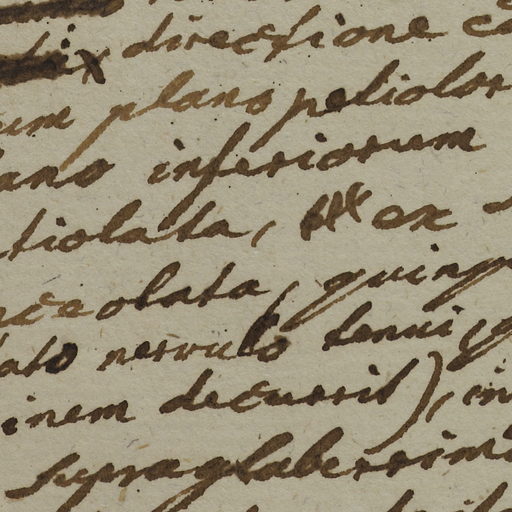 directione
um plano petiolor
ano inferiorum
tiolata, ex
nceolata, quinqu
ato nervulo tenui, q
inem decuerit), in
supra glaberrim